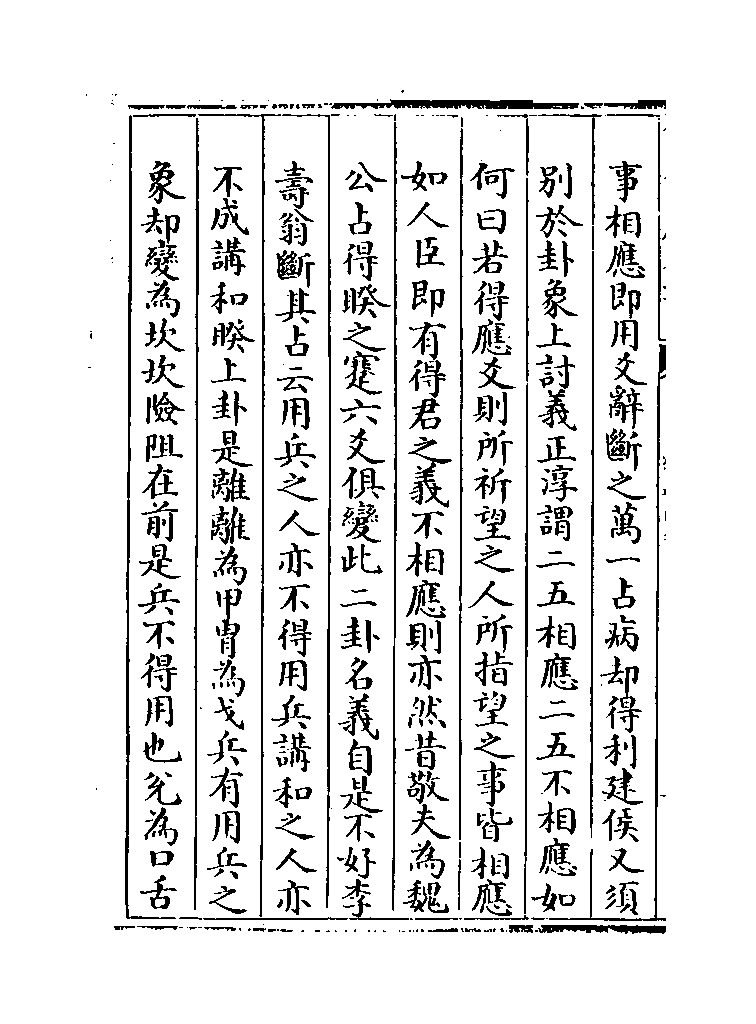 事相應即用爻辭斷之萬一占病却得利建侯又須
別於卦象上討義正淳謂二五相應二五不相應如
何曰若得應爻則所祈望之人所指望之事皆相應
如人臣即有得君之義不相應則亦然昔敬夫為魏
公占得暌之蹇六爻俱變此二卦名義自是不好李
壽翁斷其占云用兵之人亦不得用兵講和之人亦
不成講和暌上卦是離離為甲冑為戈兵有用兵之
象却變為坎坎險阻在前是兵不得用也兊為口舌